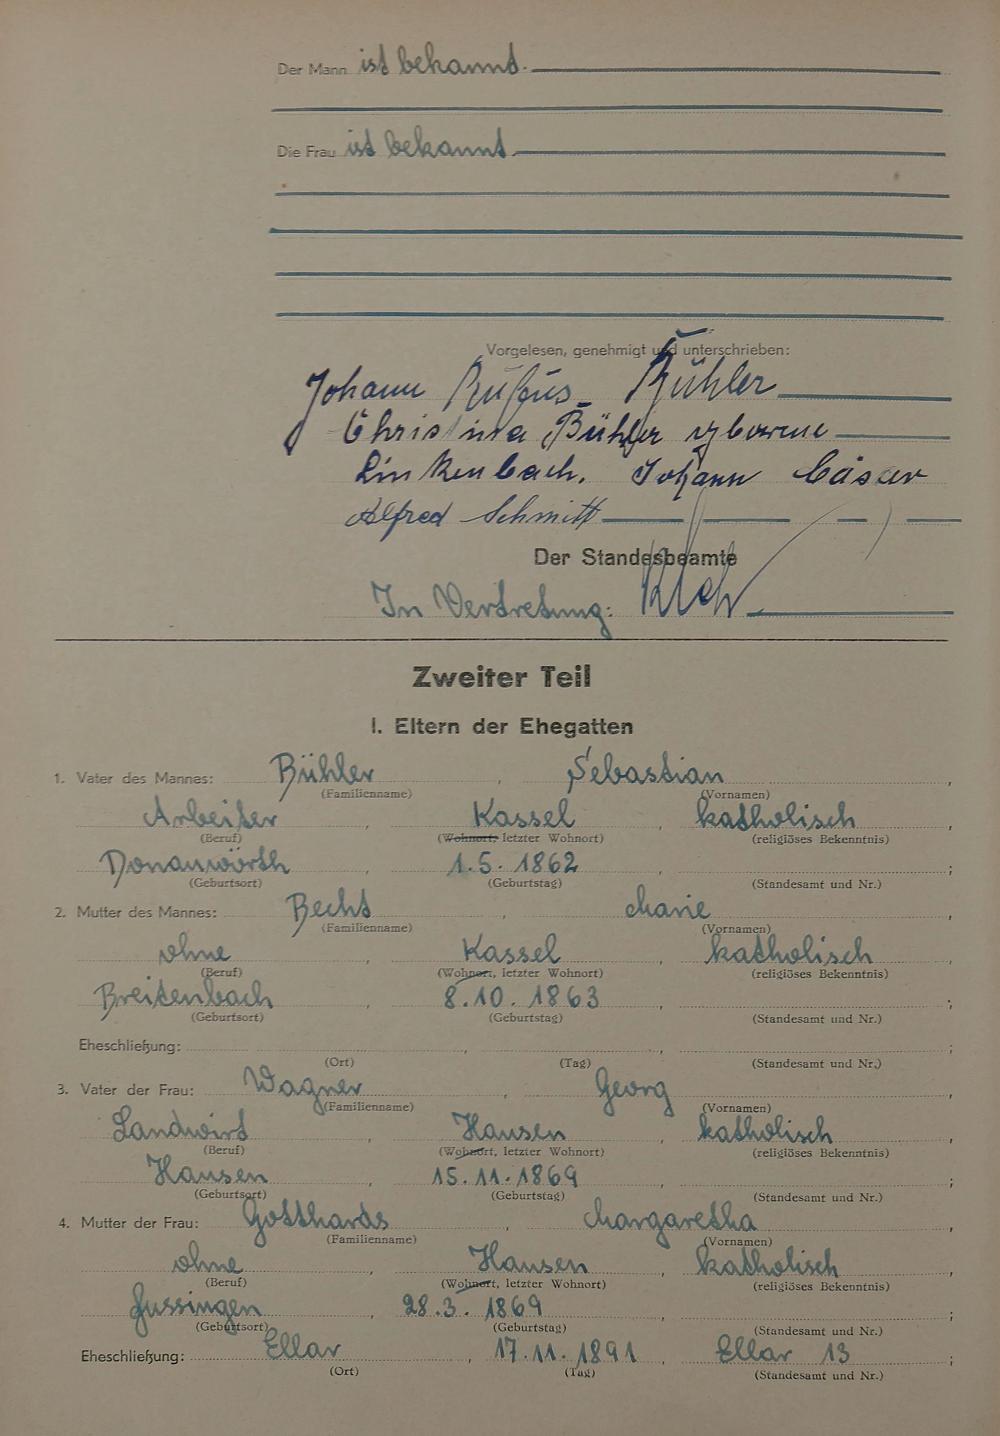 Der Mann ist bekannt.
Die Frau ist bekannt.
Vorgelesen, genehmigt und unterschrieben:
Johann Rufus Bühler
Christina Bühler geborene
Linkenbach. Johann Cäsar
Alfred Schmitt
Der Standesbeamte
In Vertretung:
Zweiter Teil
I. Eltern der Ehegatten
1. Vater des Mannes: Bühler, Sebastian,
(Familienname) (Vornamen)
Arbeiter, Kassel, katholisch,
(Beruf) (Wohnort, letzter Wohnort) (religiöses Bekenntnis)
Donauwörth, 1.5.1862, ;
(Geburtsort) (Geburtstag) (Standesamt und Nr.)
2. Mutter des Mannes: Becht, Marie,
(Familienname) (Vornamen)
ohne, Kassel, katholisch,
(Beruf) (Wohnort, letzter Wohnort) (religiöses Bekenntnis)
Breitenbach, 8.10.1863, ;
(Geburtsort) (Geburtstag) (Standesamt und Nr.)
Eheschließung: , , ;
(Ort) (Tag) (Standesamt und Nr.)
3. Vater der Frau: Wagner, Georg,
(Familienname) (Vornamen)
Landwirt, Hausen, katholisch,
(Beruf) (Wohnort, letzter Wohnort) (religiöses Bekenntnis)
Hausen, 15.11.1869, ;
(Geburtsort) (Geburtstag) (Standesamt und Nr.)
4. Mutter der Frau: Gotthards, Margaretha,
(Familienname) (Vornamen)
ohne, Hausen, katholisch,
(Beruf) (Wohnort, letzter Wohnort) (religiöses Bekenntnis)
Fussingen, 28.3.1869, ;
(Geburtsort) (Geburtstag) (Standesamt und Nr.)
Eheschließung: Ellar, 17.11.1891, Ellar 13;
(Ort) (Tag) (Standesamt und Nr.)